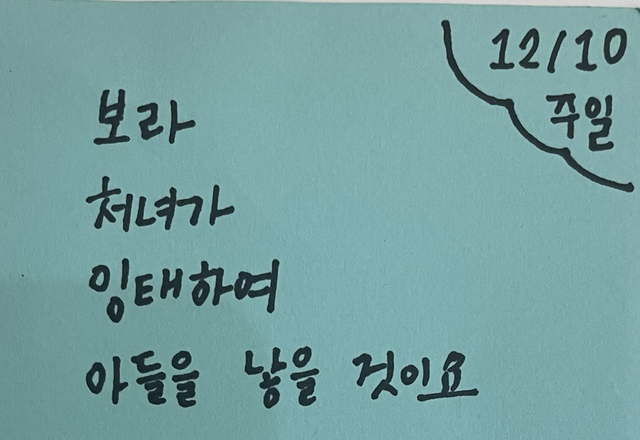 12/10
주일
보라
처녀가
잉태하여
아들을 낳을 것이요